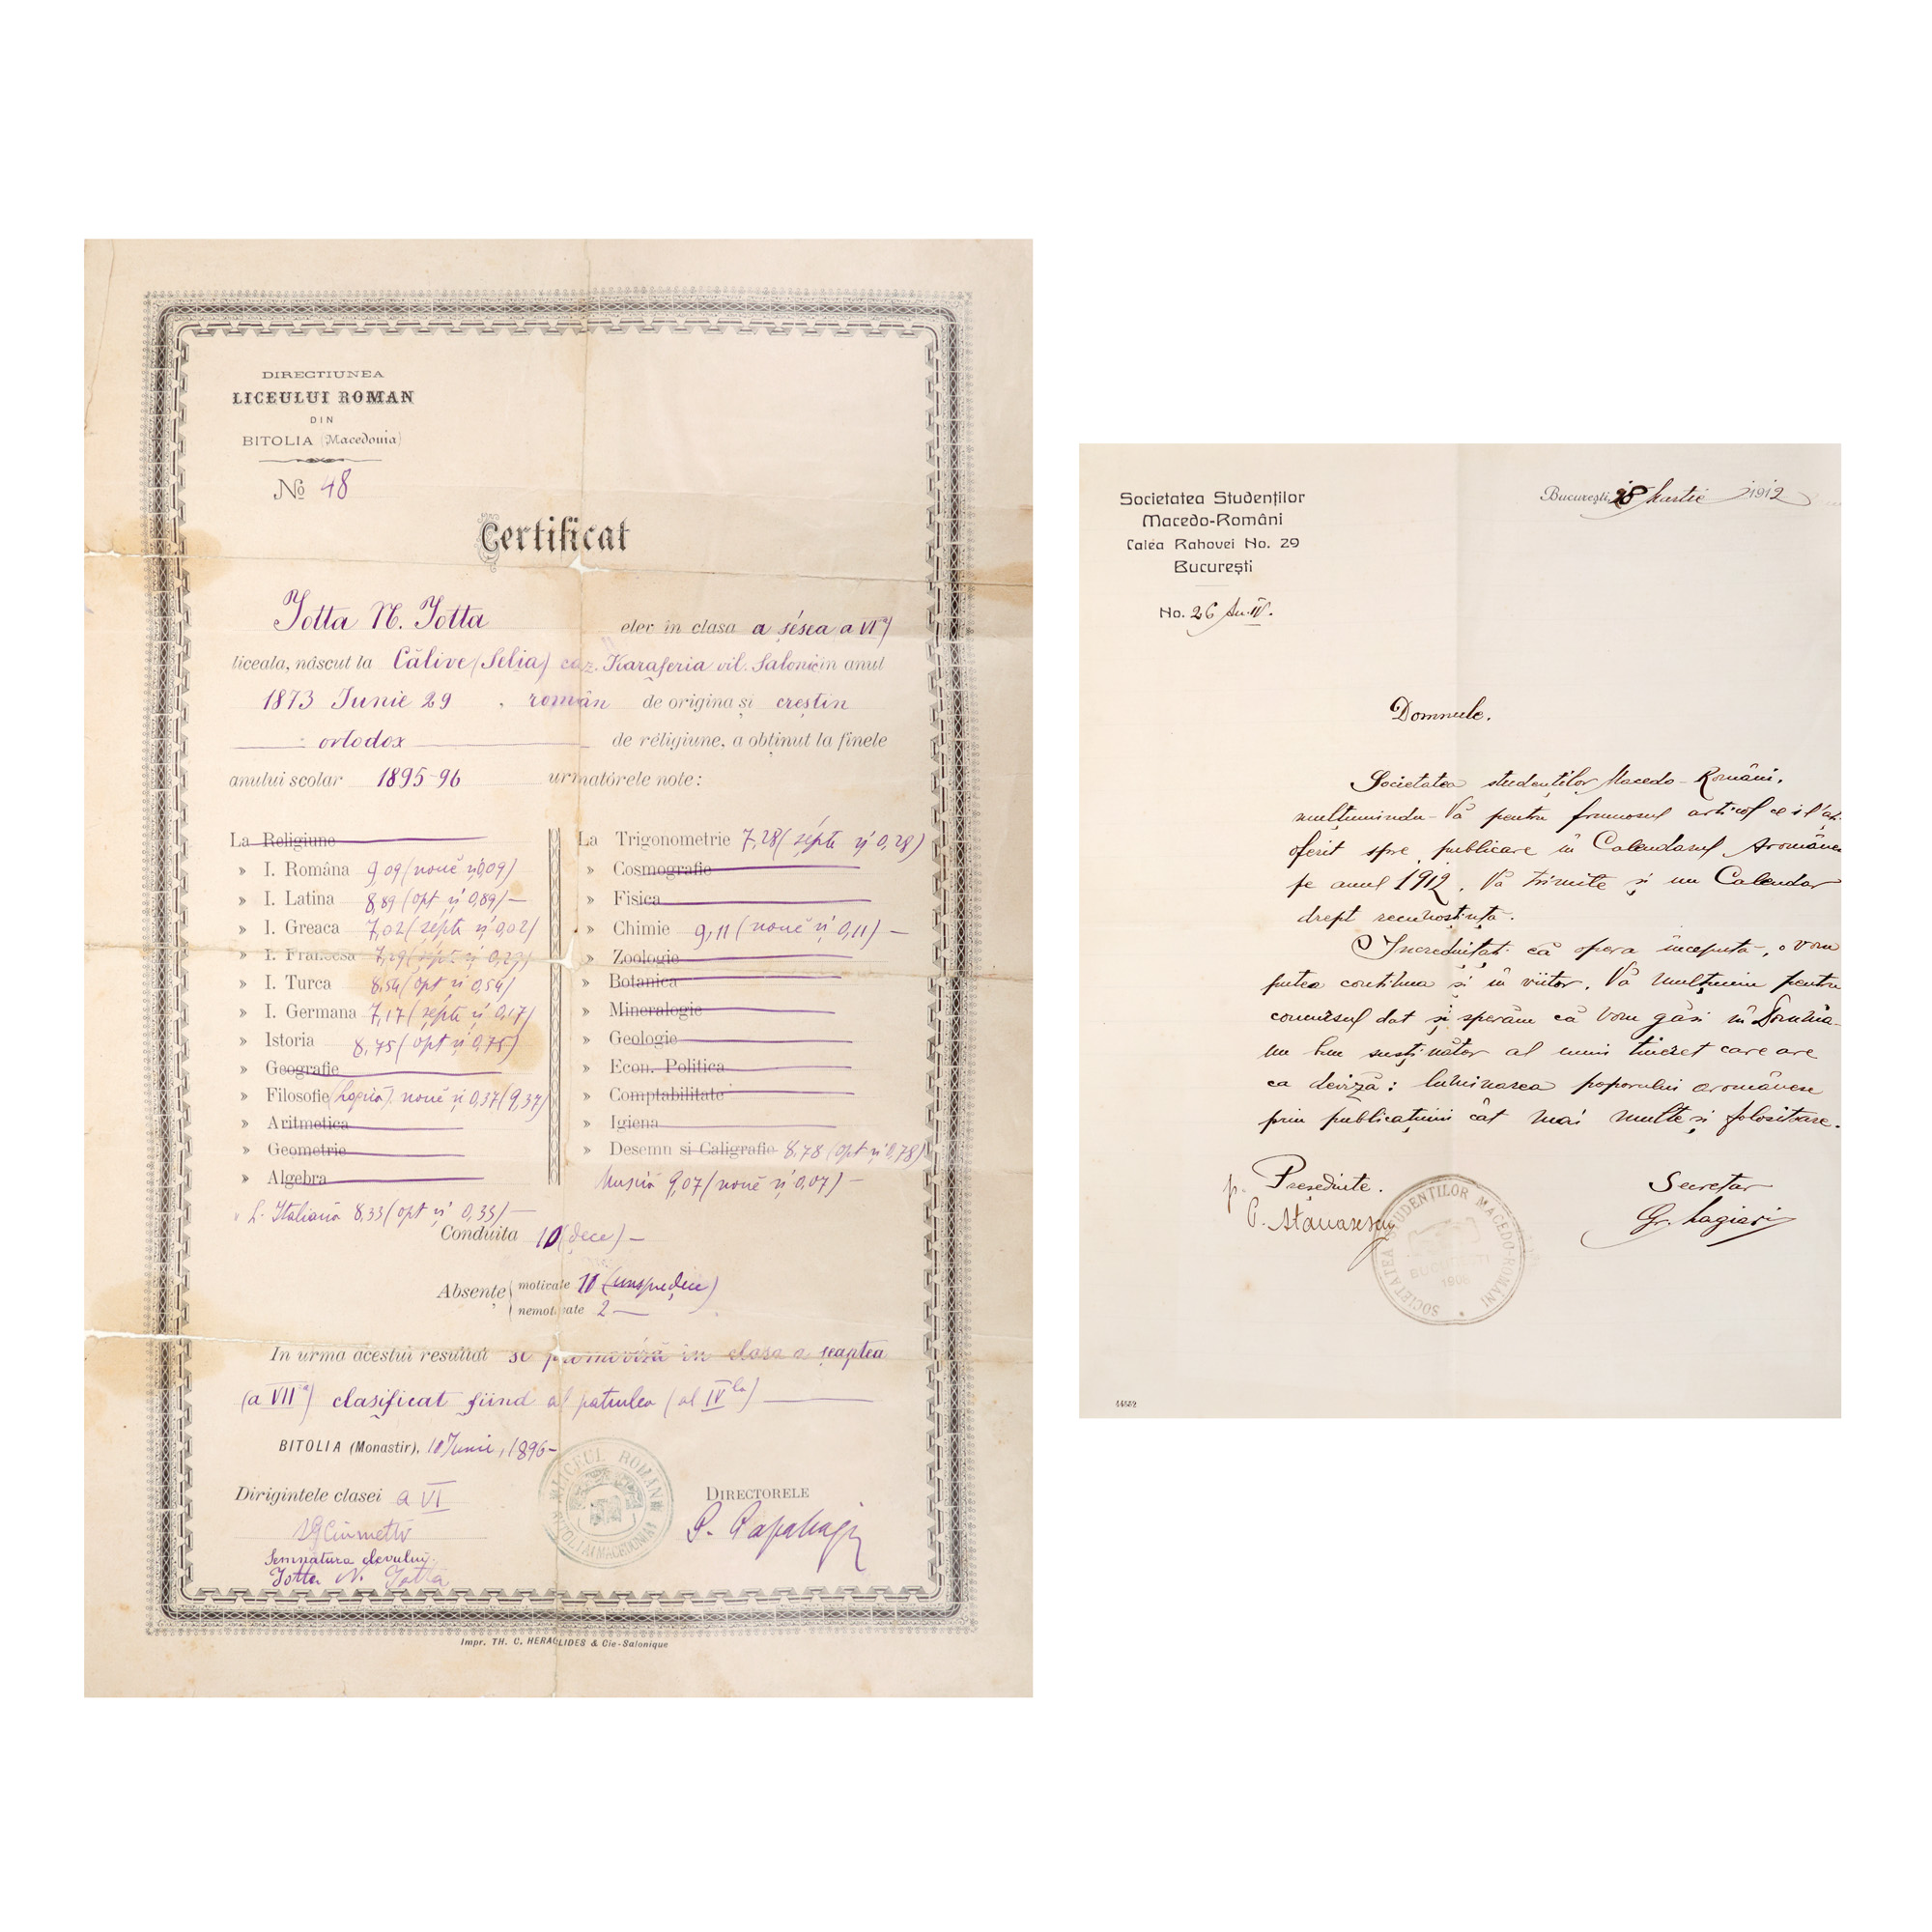 DIRECTIUNEA
LICEULUI ROMAN
DIN
BITOLIA (Macedonia)
No 48
Certificat
Iotta N. Iotta elev in clasa a șésea a VI a)
liceala, născut la Călive (Selia) caz. Karaferia vil. Salonic in anul
1873 Iunie 29 . român de origina si creștin
ortodox de réligiune, a obținut la finele
anului scolar 1895-96 urmatórele note:
La Religiune
» I. Româna 9,09 (nouĕ și 0,09)
» I. Latina 8,89 (opt și 0,89) —
» I. Greaca 7,02 (șépte și 0,02)
» I. Francesa 7,29 (șépte și 0,29)
» I. Turca 8,54 (opt și 0,54)
» I. Germana 7,17 (șépte și 0,17)
» Istoria 8,75 (opt și 0,75)
» Geografie
» Filosofie (Logica). nouĕ și 0,37 (9,37)
» Aritmetica
» Geometrie
» Algebra
» L. Italiană 8,33 (opt și 0,33) —
La Trigonometrie 7,28 (șépte și 0,28)
» Cosmografie
» Fisica
» Chimie 9,11 (nouĕ și 0,11) —
» Zoologie
» Botanica
» Mineralogie
» Geologie
» Econ. Politica
» Comptabilitate
» Igiena
» Desemn si Caligrafie 8,78 (opt și 0,78)
Musică 9,07 (nouĕ și 0,07) —
Conduita 10 (dece) —
Absențe motivate 11 (unspredece)
nemotivate 2 —
In urma acestui resultat se promovéză in clasa a șeaptea
(a VII a) clasificat fiind al patrulea (al IV lea)
BITOLIA (Monastir), 10 Iunie, 1896 —
Dirigintele clasei a VI
DIRECTORELE
P. Papahagi
Semnătura elevului,
Iotta N. Iotta
LICEUL ROMAN
BITOLIA (MACEDONIA)
Impr. TH. C. HERACLIDES & Cie-Salonique
Societatea Studenților
Macedo-Români
Calea Rahovei No. 29
București
No. 26 An. IV.
București, 28 Martie 1912
Domnule,
Societatea studenților Macedo-Români,
mulțumindu-Vă pentru frumosul articol ce i l'ați
oferit spre publicare în Calendarul Aromânesc
pe anul 1912. Vă trimite și un Calendar
drept recunoștință.
Încredințați că opera începută, o vom
putea continua și în viitor, Vă mulțumim pentru
concursul dat și sperăm că vom găsi în Domnia-
un bun susținător al unui tineret care are
ca deviză: luminarea poporului aromânesc
prin publicațiuni cât mai multe și folositoare.
p. Președinte.
Secretar
SOCIETATEA STUDENȚILOR MACEDO-ROMÂNI
BUCUREȘTI
44552